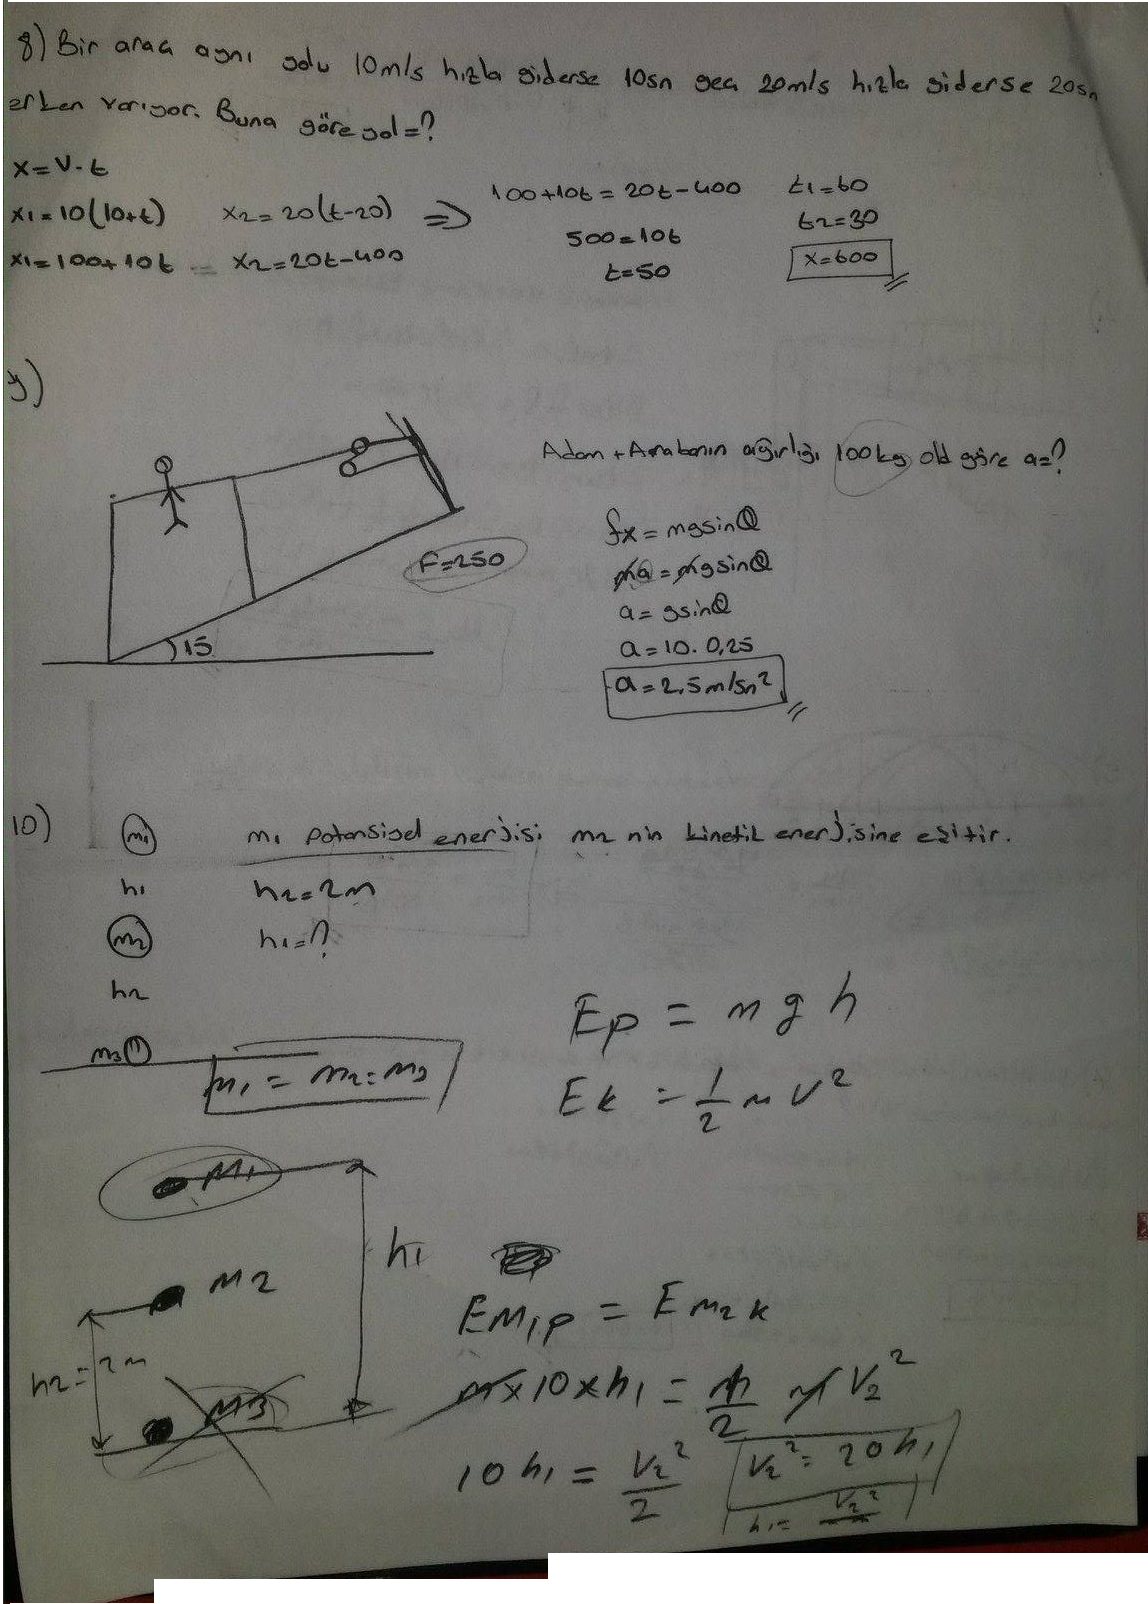 8) Bir araç aynı yolu 10m/s hızla giderse 10sn geç 20m/s hızla giderse 20sn
erken varıyor. Buna göre yol=?
x=v.t
x1=10(10+t) x2=20(t-20) => 100+10t=20t-400 t1=60
x1=100+10t = x2=20t-400 500=10t t2=30
t=50 x=600
9)
Adam+Arabanın ağırlığı 100kg old göre a=?
F=250
15
fx=mgsinθ
ma=mgsinθ
a=gsinθ
a=10.0,25
a=2,5m/sn²
10) m1 m1 potansiyel enerjisi m2 nin kinetik enerjisine eşittir.
h1 h2=2m
m2 h1=?
h2
m3
m1=m2=m3
Ep=mgh
Ek=1/2mv²
M1
h1
M2
h2=2m
M3
EM1p=Em2k
mx10xh1=m/2 V2²
10h1=V2²/2 V2²=20h1
h1=V2²